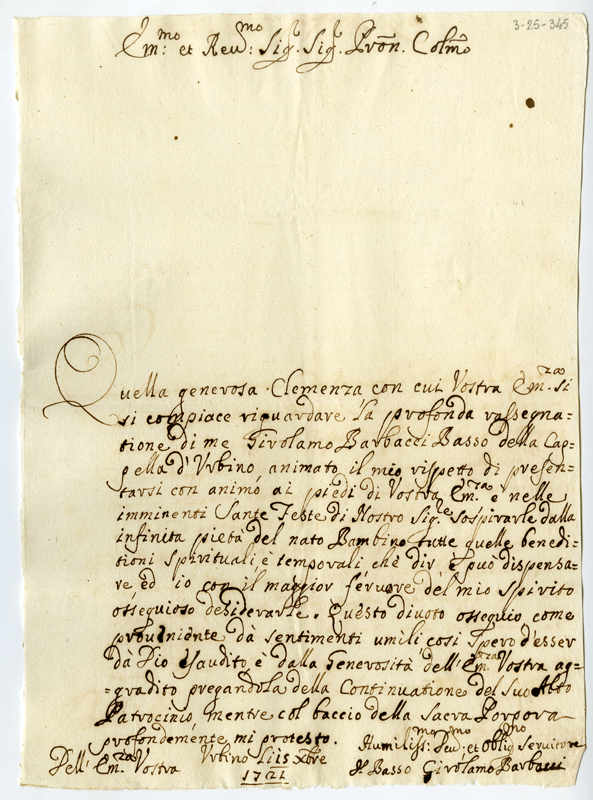 3-25-345
Em:mo et Reu:mo Sigr. Sigr. Prōn. Colmo
Quella generosa Clemenza con cui Vostra Em.za si
si compiace riguardare la profonda rassegna=
tione di me Girolamo Barbacci Basso della Cap=
pella d'Urbino, animato il mio rispetto di presen=
tarsi con animo ai piedi di Vostra Em.za è nelle
imminenti Sante Feste di Nostro Sig.e sospirarle dalla
infinita pietà del nato Bambino tutte quelle benedi=
tioni spirituali, è temporali, che dir è può dispensa=
re, ed io con il maggior feruore del mio spirito
ossequioso desiderarle. Questo diuoto ossequio come
proueniente dà sentimenti umili così spero d'esser
dà Dio esaudito, è dalla Generosità dell'Em.za Vostra ag=
=gradito pregandola della Continuatione del Suo Alto
Patrocinio, mentre col baccio della Sacra Porpora
profondemente mi protesto.
Dell'Em.za Vostra Urbino li 15 Xbre
1721
Humiliss:mo Deu:mo et oblig:mo Seruitore
Il Basso Girolamo Barbacci